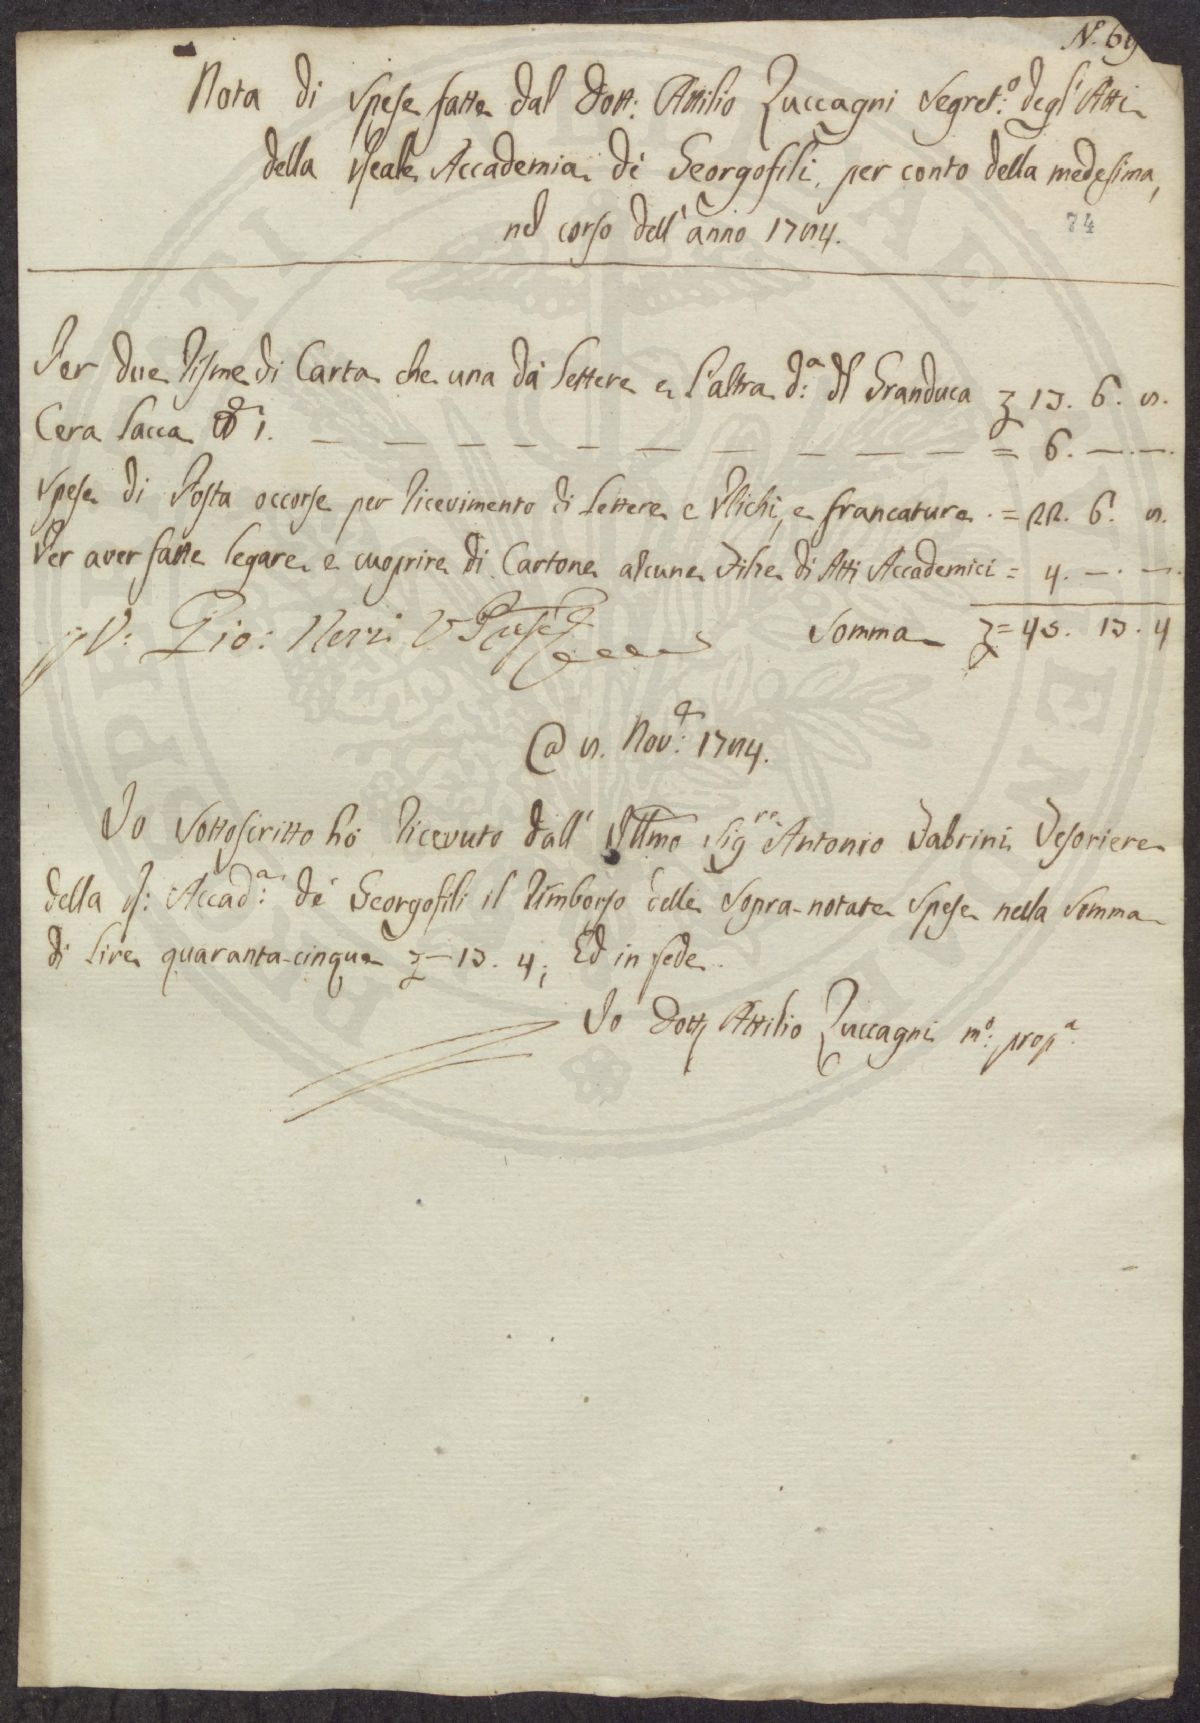 N.° 69
Nota di Spese fatte dal Dott: Attilio Zuccagni Segret:° degl'Atti
della Reale Accademia de' Georgofili, per conto della medesima,
nel corso dell'anno 1784.
74
Per due Risme di Carta che una da Lettere e l'altra d:ª del Granduca £ 13. 6. 8.
Cera lacca ℔ 1. — — — — — — — — — — = 6. —. —.
Spese di Posta occorse per ricevimento di Lettere e Plichi, e francature = 22. 6. 8.
Per aver fatte legare e cuoprire di Cartone alcune Filze di Atti Accademici = 4. —. —.
V: Gio: Neri V. Somma £ = 45. 13. 4
@ 8. Nov:e 1784.
Io Sottoscritto hò ricevuto dall' Illmo Sigre Antonio Fabrini Tesoriere
della R: Accad:ª de' Georgofili il rimborso delle sopra-notate Spese nella somma
di Lire quaranta-cinque £ — 13. 4; Ed in fede
Io Dott Attilio Zuccagni m:° prop:ª